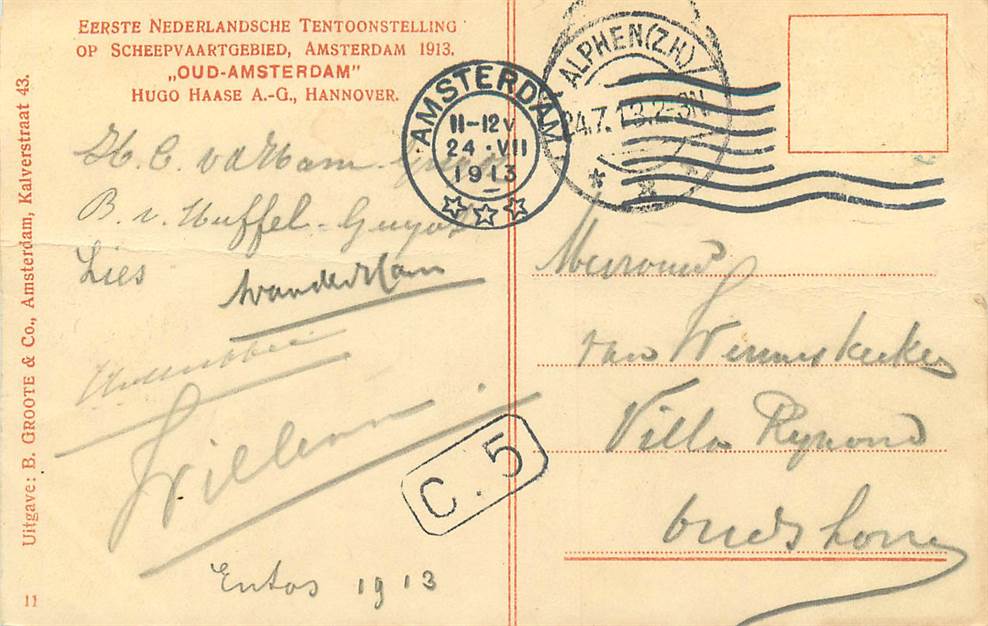 EERSTE NEDERLANDSCHE TENTOONSTELLING
OP SCHEEPVAARTGEBIED, AMSTERDAM 1913.
„OUD-AMSTERDAM”
HUGO HAASE A.-G., HANNOVER.
Uitgave: B. GROOTE & Co., Amsterdam, Kalverstraat 43.
11
AMSTERDAM
11-12V
24 · VII
1913
ALPHEN(Z.H)
24.7.13.2-3N
H. C. v d Ham
B. v. Nuffel - Guyot
Lies
Willem.
Entos 1913
C. 5
Mevrouw
van
Villa Rynoord
Oudshoorn